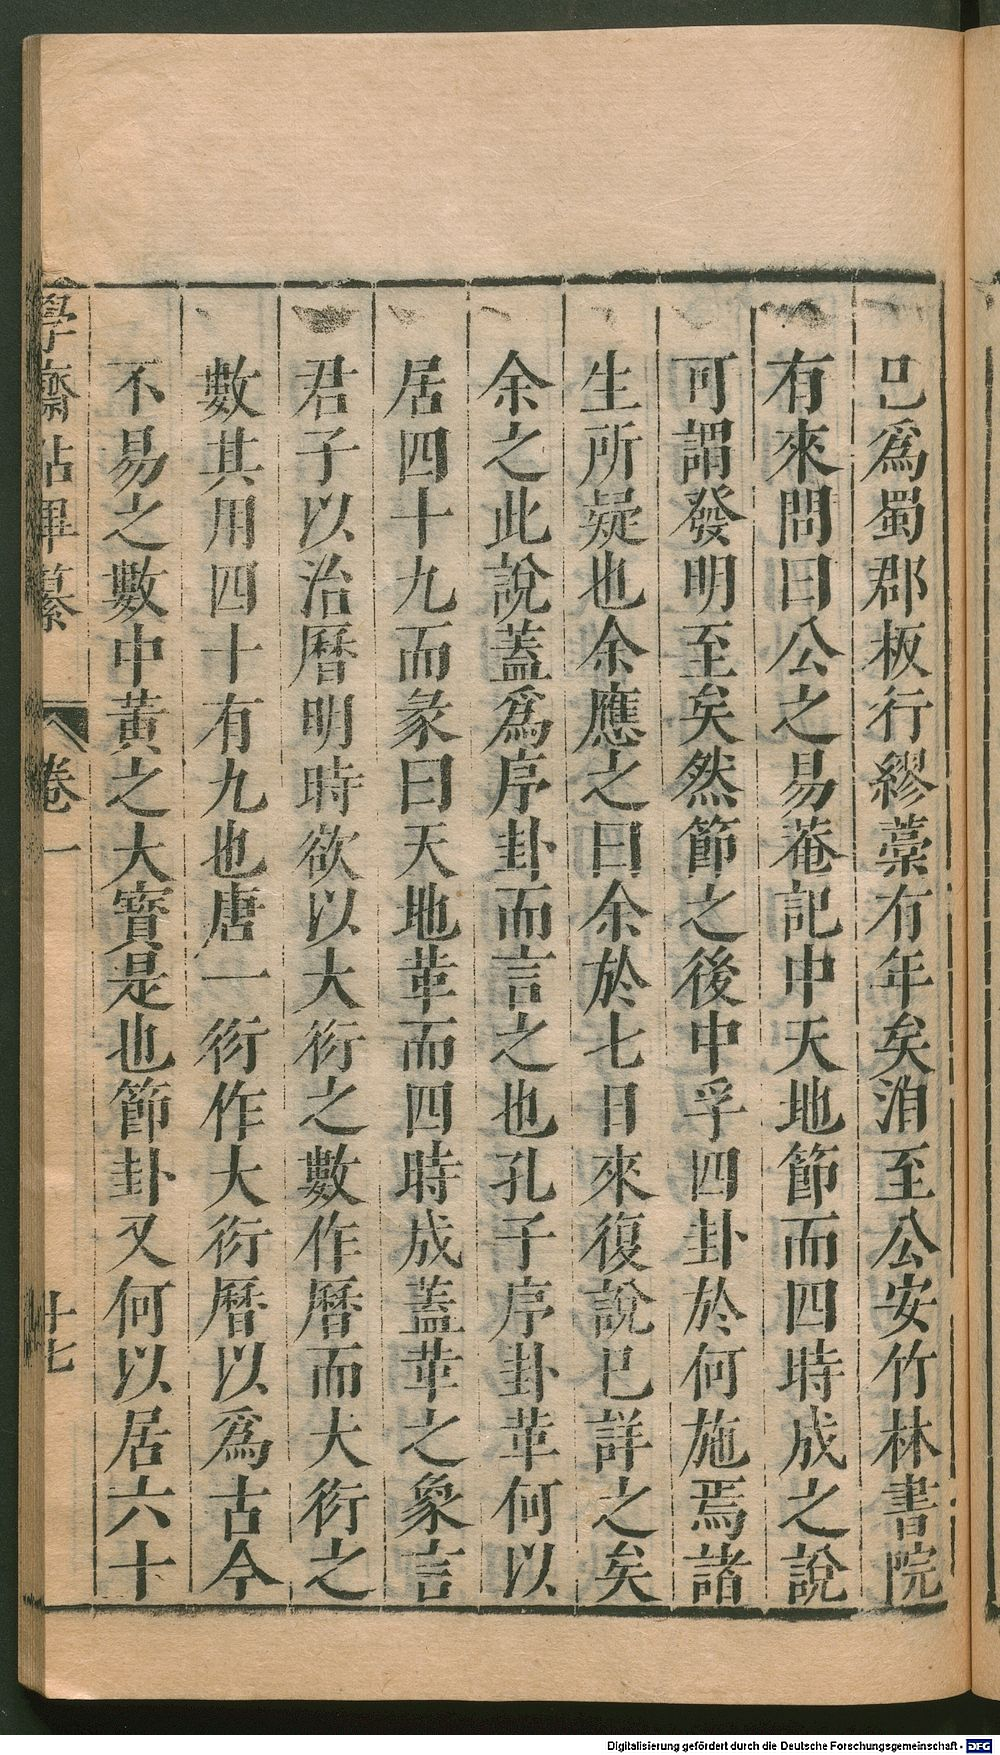 已爲蜀郡板行繆藁有年矣洎至公安竹林書院
有來問曰公之易菴記中天地節而四時成之說
可謂發明至矣然節之後中孚四卦於何施焉諸
生所疑也余應之曰余於七日來復說已詳之矣
余之此說蓋爲序卦而言之也孔子序卦革何以
居四十九而彖曰天地革而四時成蓋革之象言
君子以治曆明時欲以大衍之數作曆而大衍之
數其用四十有九也唐一衍作大衍曆以爲古今
不易之數中黃之大寶是也節卦又何以居六十
學齋佔畢纂 卷一 十七
Digitalisierung gefördert durch die Deutsche Forschungsgemeinschaft - DFG